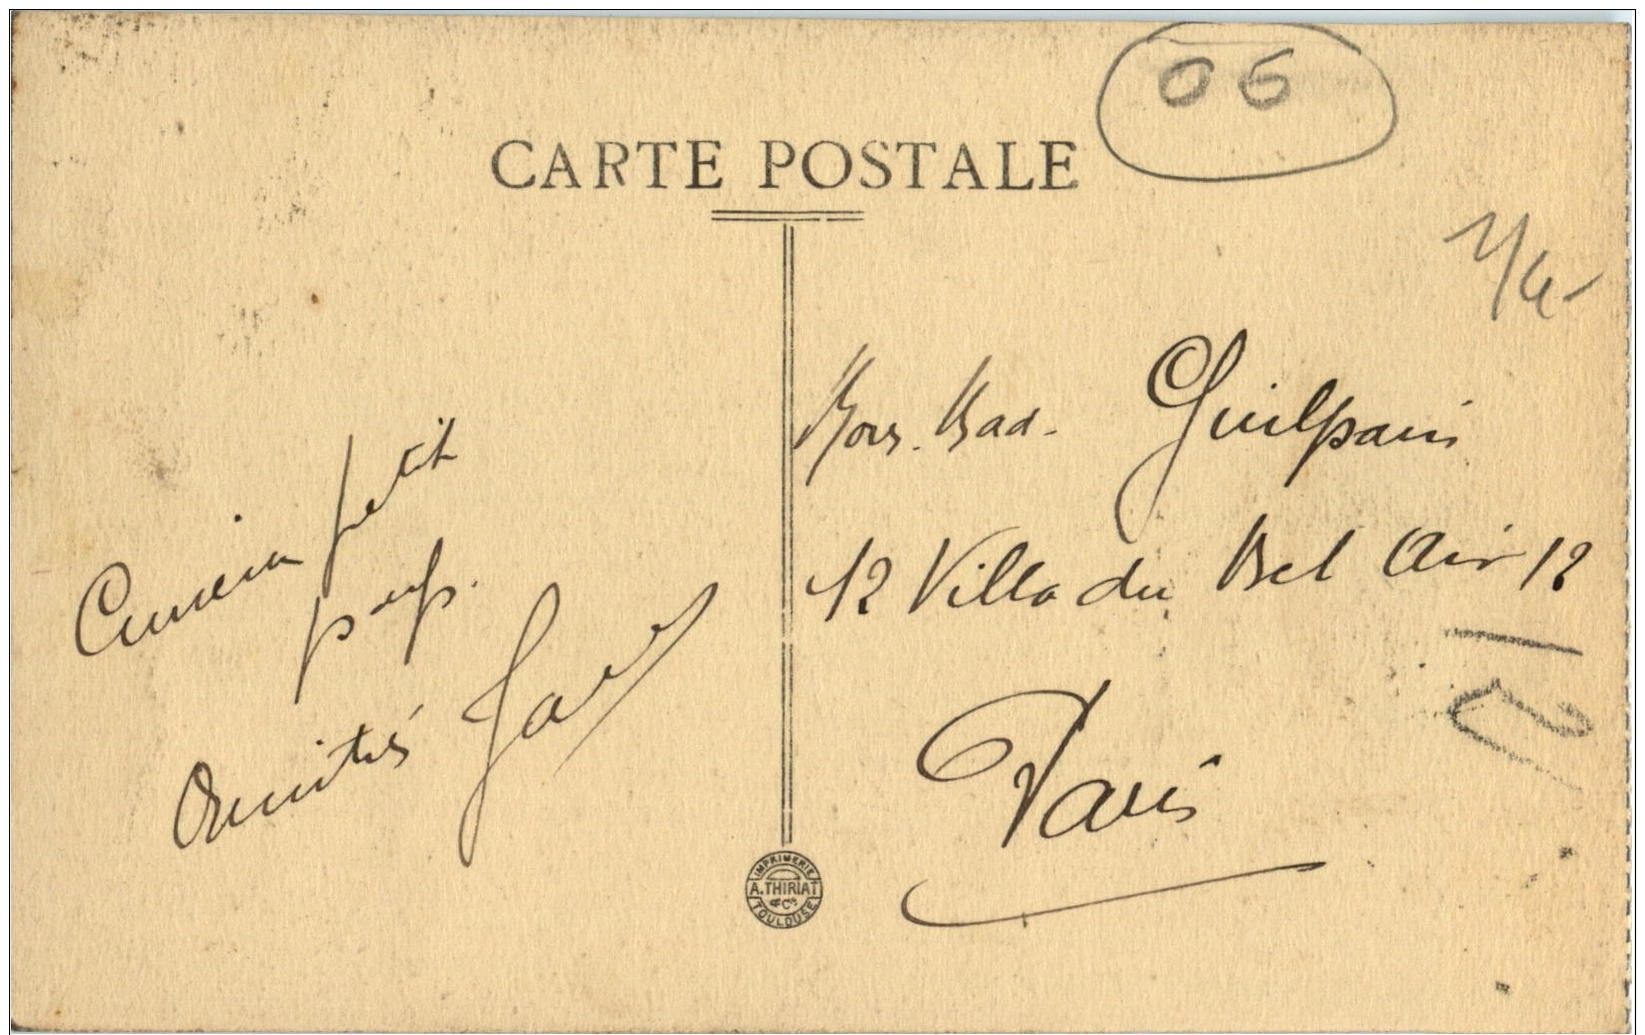 CARTE POSTALE
06
petit
pays.
Amitiés
Mons. Mad. Guilpain
12 Villa du Bel Air 12
Paris
IMPRIMERIE
A. THIRIAT
& Cie
TOULOUSE